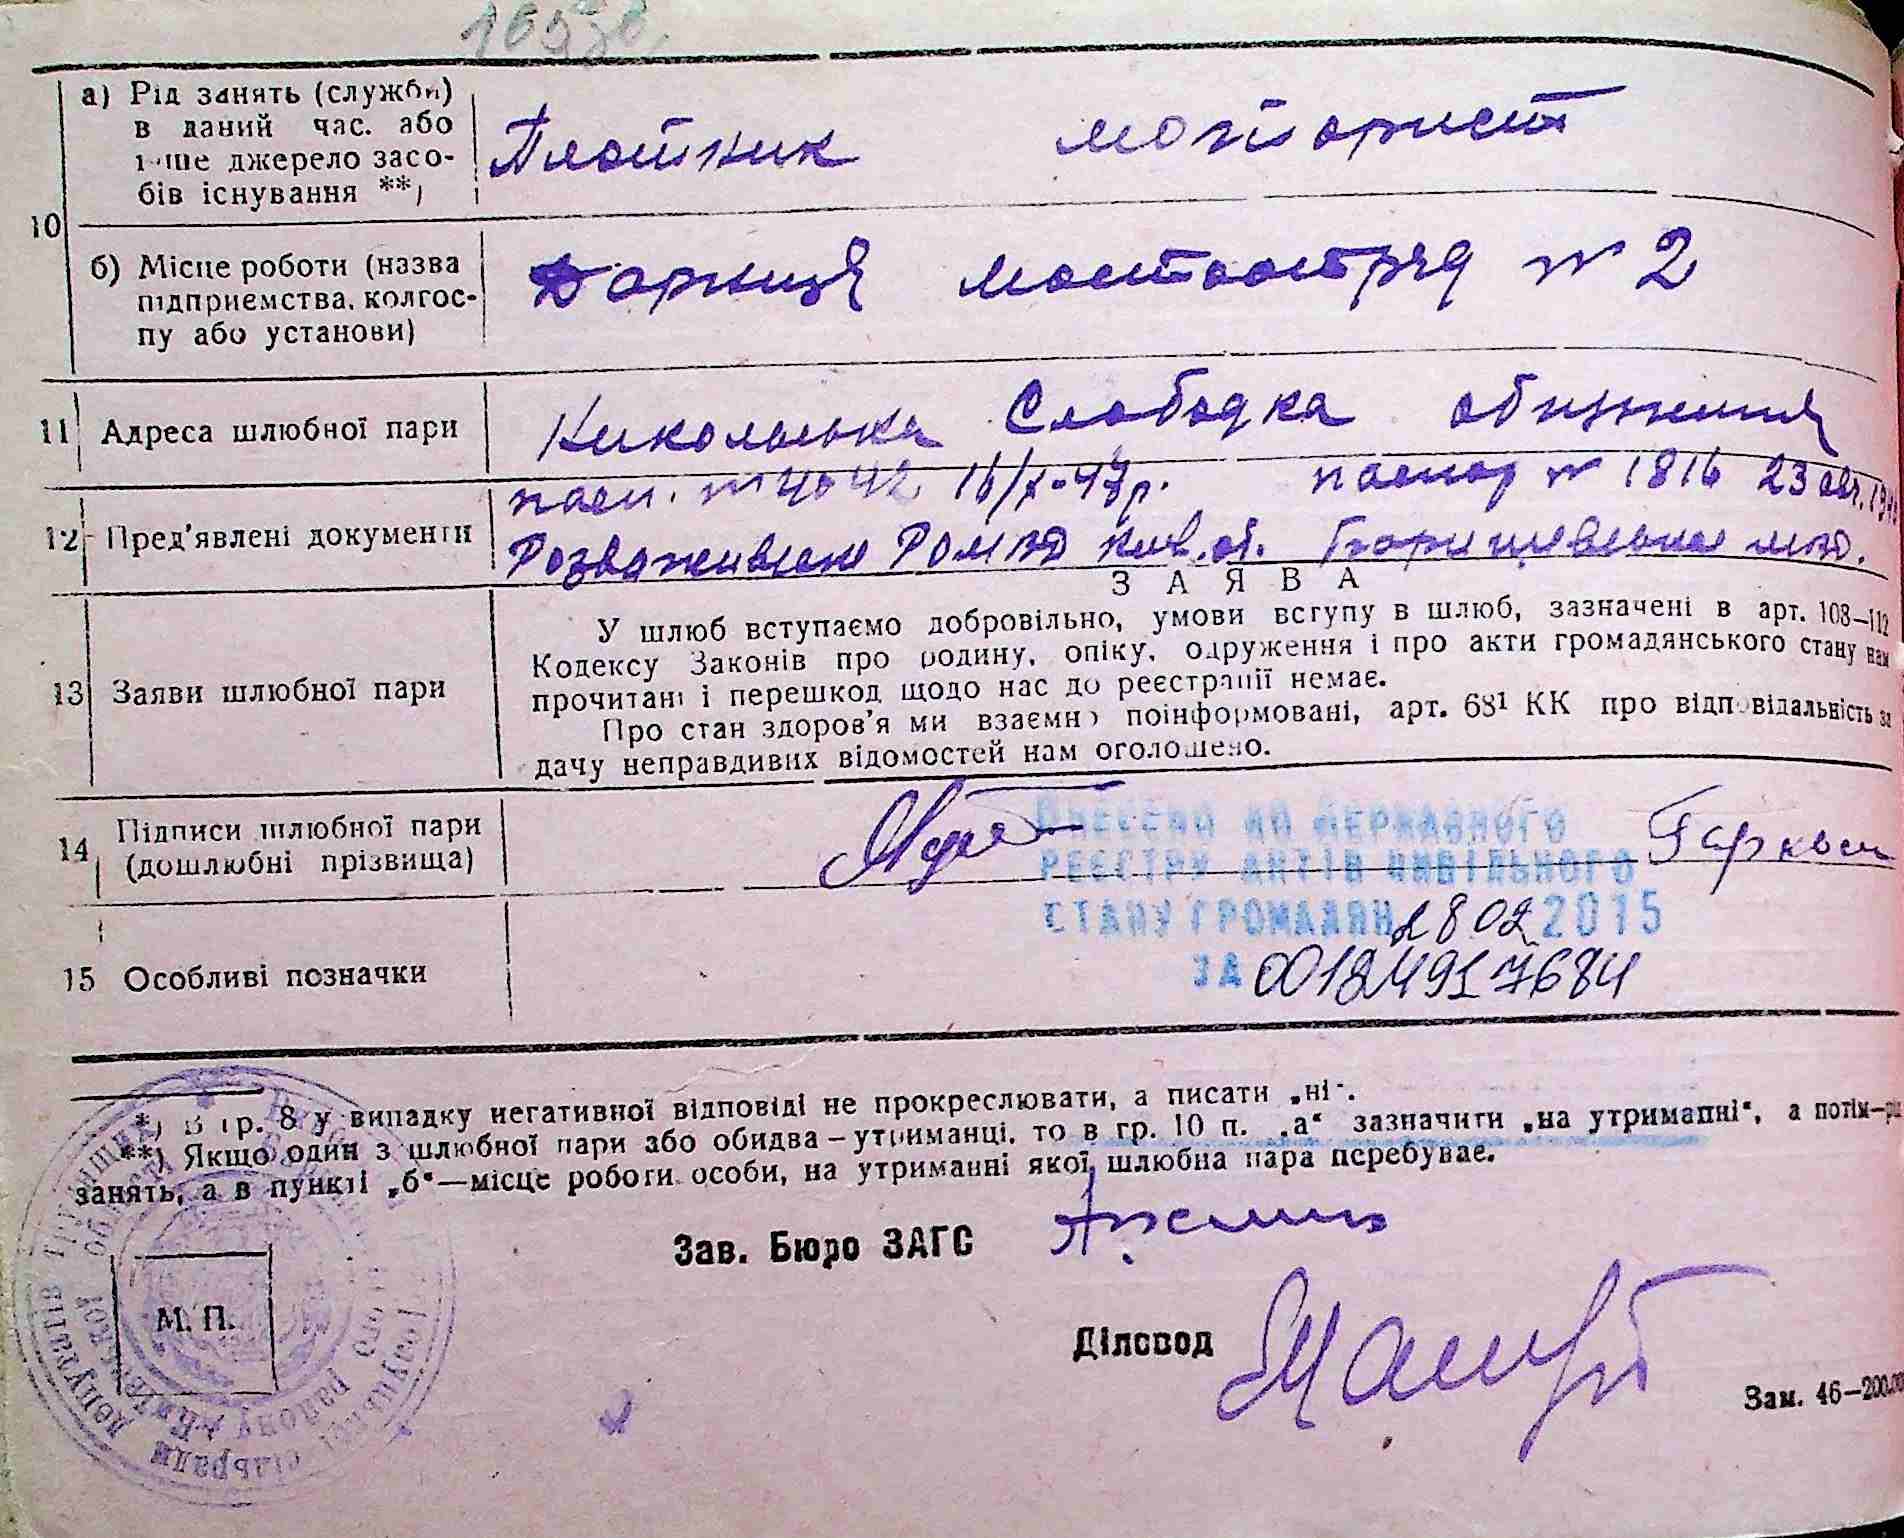 а) Рід занять (служби)
в даний час. або
інше джерело засо-
бів існування **)
Плотник моторист
10
б) Місце роботи (назва
підприємства, колгос-
пу або установи)
Дарниця мостоотряд № 2
11 Адреса шлюбної пари
Никольска Слободка общежития
12 Пред'явлені документи
пасп. № 16/X-47р. паспор № 1816 23
Розважевское РОМВД Киев. об. мвд.
ЗАЯВА
13 Заяви шлюбної пари
У шлюб вступаємо добровільно, умови вступу в шлюб, зазначені в арт. 108—112
Кодексу Законів про родину, опіку, одруження і про акти громадянського стану нам
прочитані і перешкод щодо нас до реєстрації немає.
Про стан здоров'я ми взаємно поінформовані, арт. 68¹ КК про відповідальність за
дачу неправдивих відомостей нам оголошено.
14 Підписи шлюбної пари
(дошлюбні прізвища)
Внесено до Державного
реєстру актів цивільного
стану громадян 28 02 2015
за 00124917684
15 Особливі позначки
*) В гр. 8 у випадку негативної відповіді не прокреслювати, а писати „ні“.
**) Якщо один з шлюбної пари або обидва — утриманці, то в гр. 10 п. „а“ зазначити „на утриманні“, а потім—рід
занять, а в пункті „б“—місце роботи особи, на утриманні якої шлюбна пара перебуває.
Зав. Бюро ЗАГС
М. П.
Діловод
Зам. 46—200